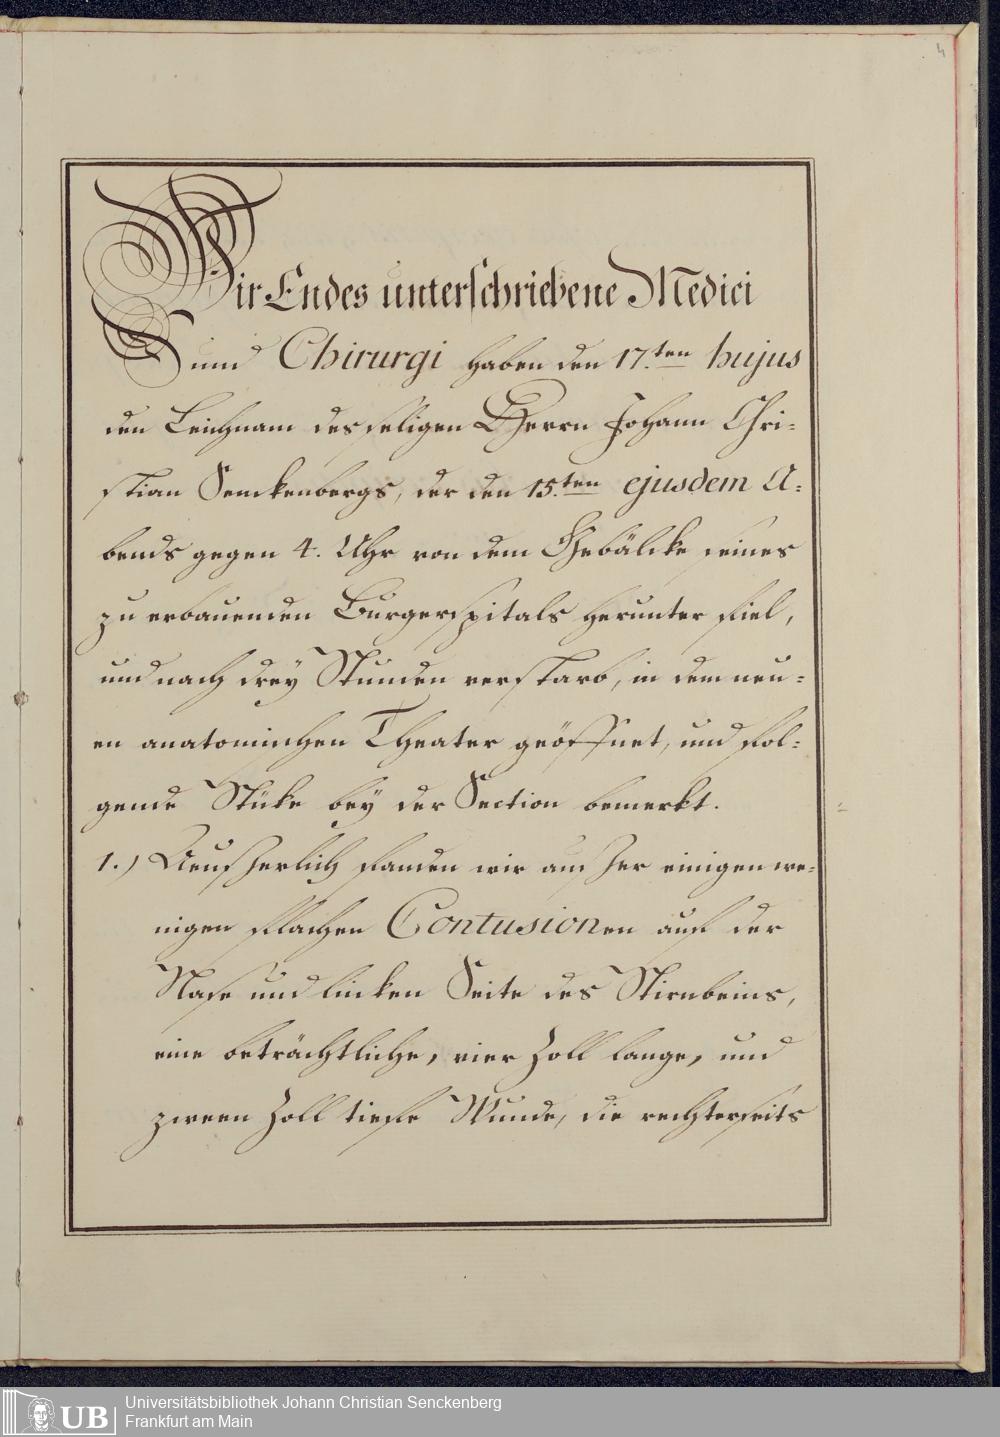 4
Wir Endes unterschriebene Medici
und Chirurgi haben den 17.ten hujus
den Leichnam des seligen Herrn Johann Chri-
stian Senckenbergs, der den 15.ten ejusdem A-
bends gegen 4. Uhr von dem Gebälcke seines
zu erbauenden Burgerspitals herunter fiel,
und nach drey Stunden verstarb, in dem neu-
en anatomischen Theater geöffnet, und fol-
gende Stüke bey der Section bemerkt.
1.) Aeusserlich fanden wir ausser einigen we-
nigen flachen Contusionen auf der
Nase und lincken Seite des Stirnbeins,
eine beträchtliche, vier Zoll lange, und
zween Zoll tiefe Wunde, die rechterseits
UB
Universitätsbibliothek Johann Christian Senckenberg
Frankfurt am Main